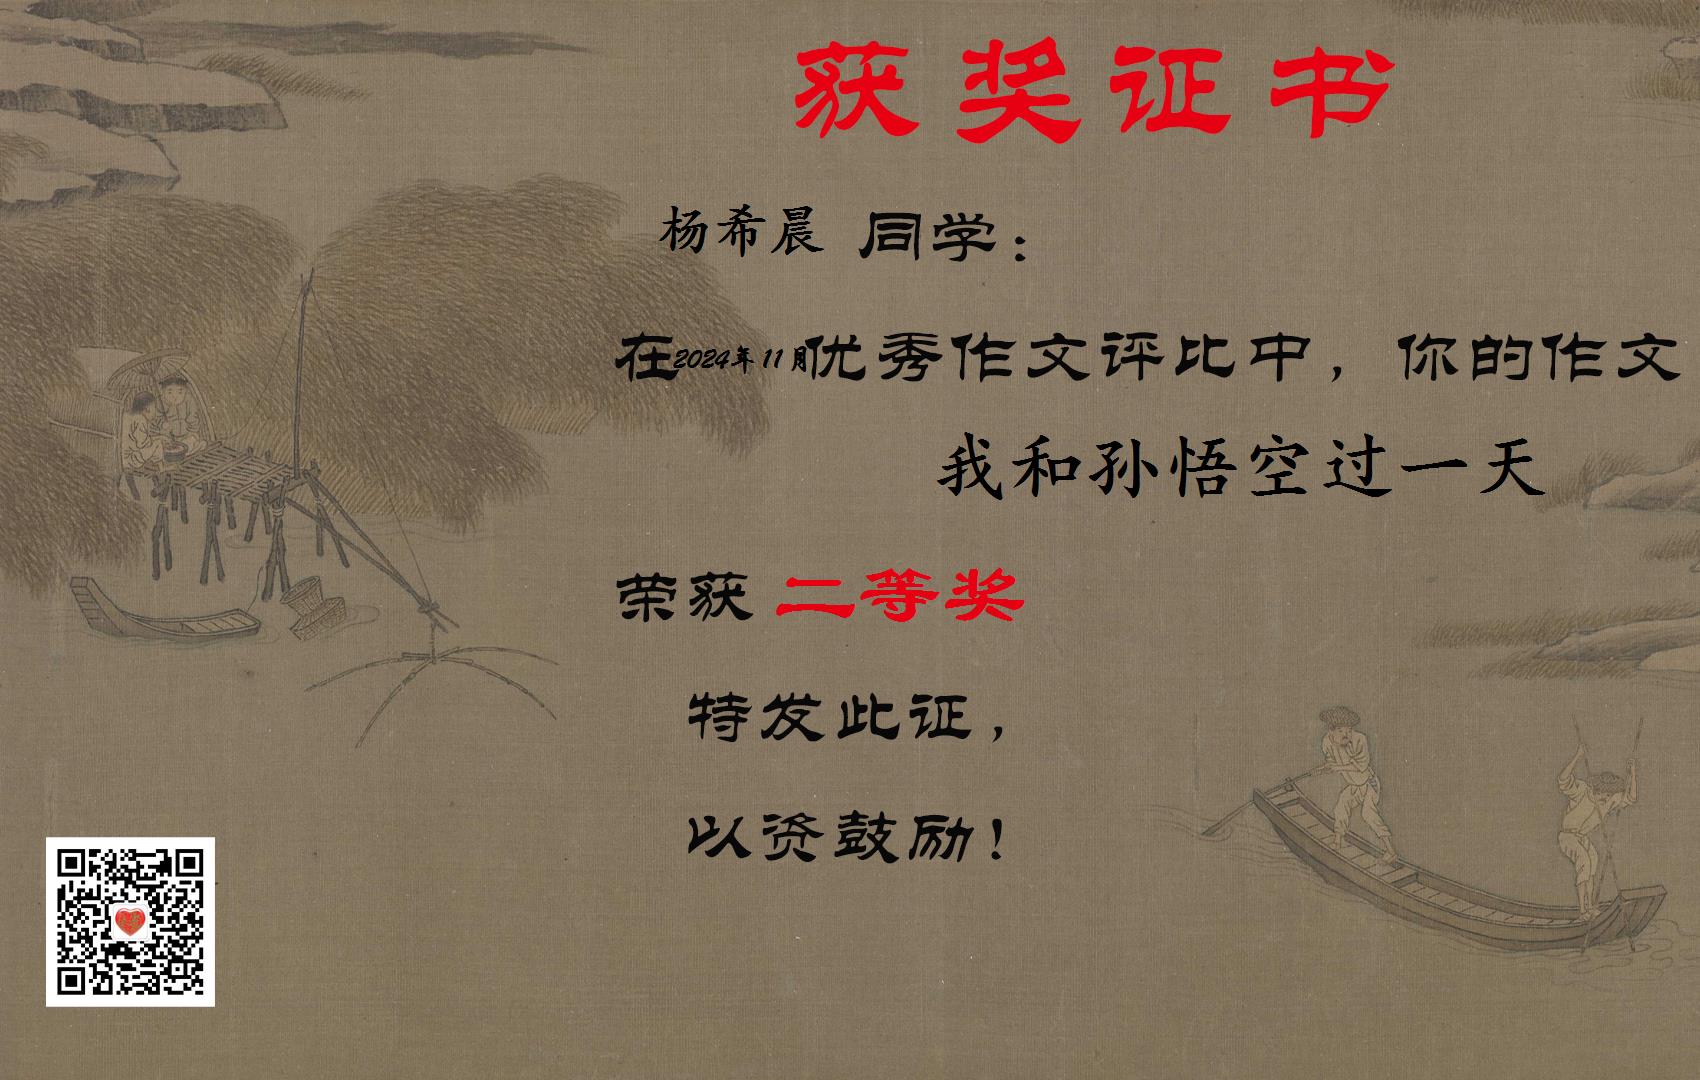 获奖证书
杨希晨 同学：
在2024年11月优秀作文评比中，你的作文
我和孙悟空过一天
荣获 二等奖
特发此证，
以资鼓励！